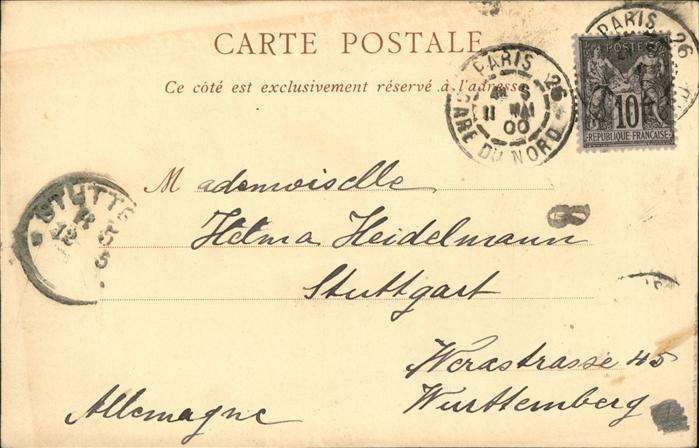 CARTE POSTALE
Ce côté est exclusivement réservé à l'adresse
PARIS 26
11 MAI
00
GARE DU NORD
PARIS 26
POSTES
10
REPUBLIQUE FRANÇAISE
STUTTG
Mademoiselle
8
Helma Heidelmann
Stuttgart
Werastrasse 45
Württemberg
Allemagne